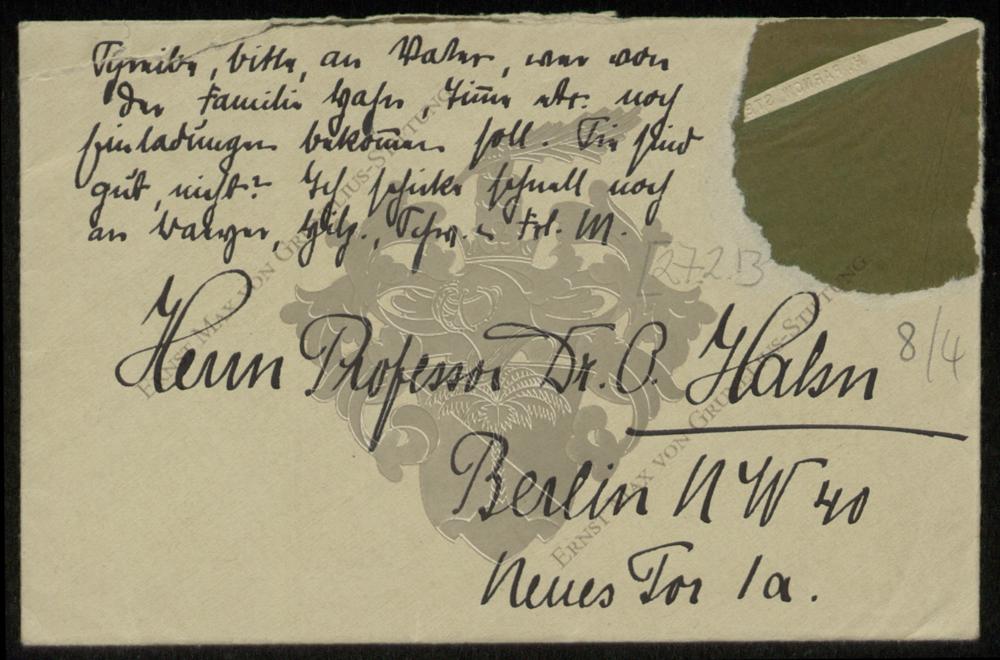 Schreibe, bitte, an Vater, wer von
der Familie Hahn, Timm etc. noch
Einladungen bekommen soll. Sie sind
gut, nicht? Ich schicke schnell noch
an Hilz., Schw. u. Frl. M.
[272.B
8/4
Herrn Professor Dr. O. Hahn
Berlin NW 40
Neues Tor 1a.
ERNST MAX VON GRUNELIUS-STIFTUNG
ERNST MAX VON GRUNELIUS-STIFTUNG